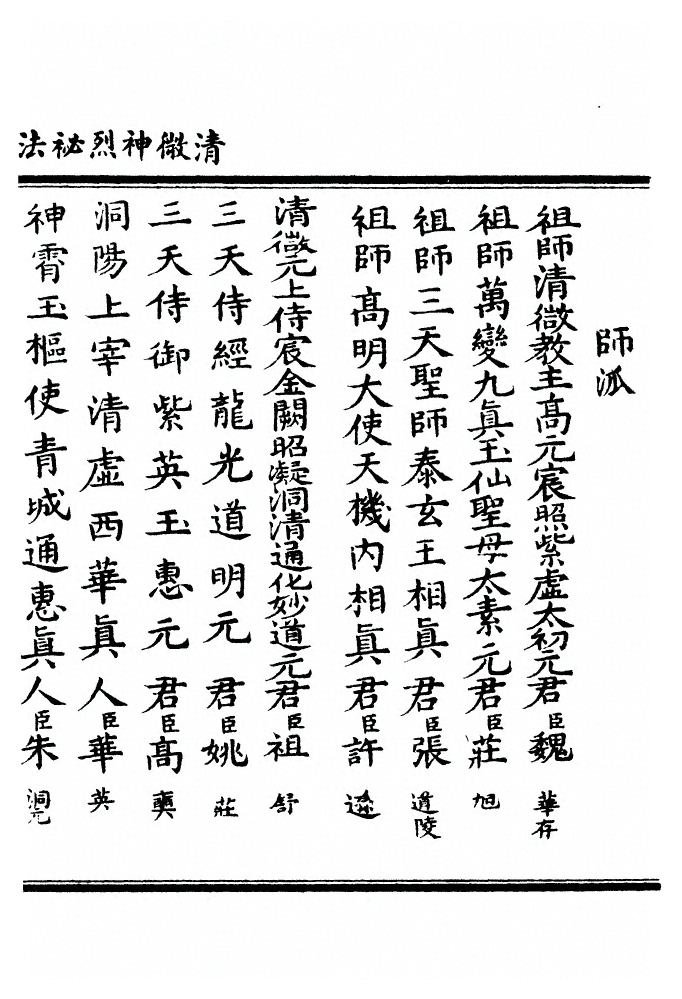 清微神烈祕法
師派
祖師清微教主高元宸照紫虛太初元君臣魏華存
祖師萬變九眞玉仙聖母太素元君臣莊旭
祖師三天聖師泰玄王相眞君臣張道陵
祖師高明大使天機內相眞君臣許遜
清微元上侍宸金闕昭凝洞清通化妙道元君臣祖舒
三天侍經龍光道明元君臣姚莊
三天侍御紫英玉惠元君臣高奭
洞陽上宰清虛西華眞人臣華英
神霄玉樞使青城通惠眞人臣朱洞元